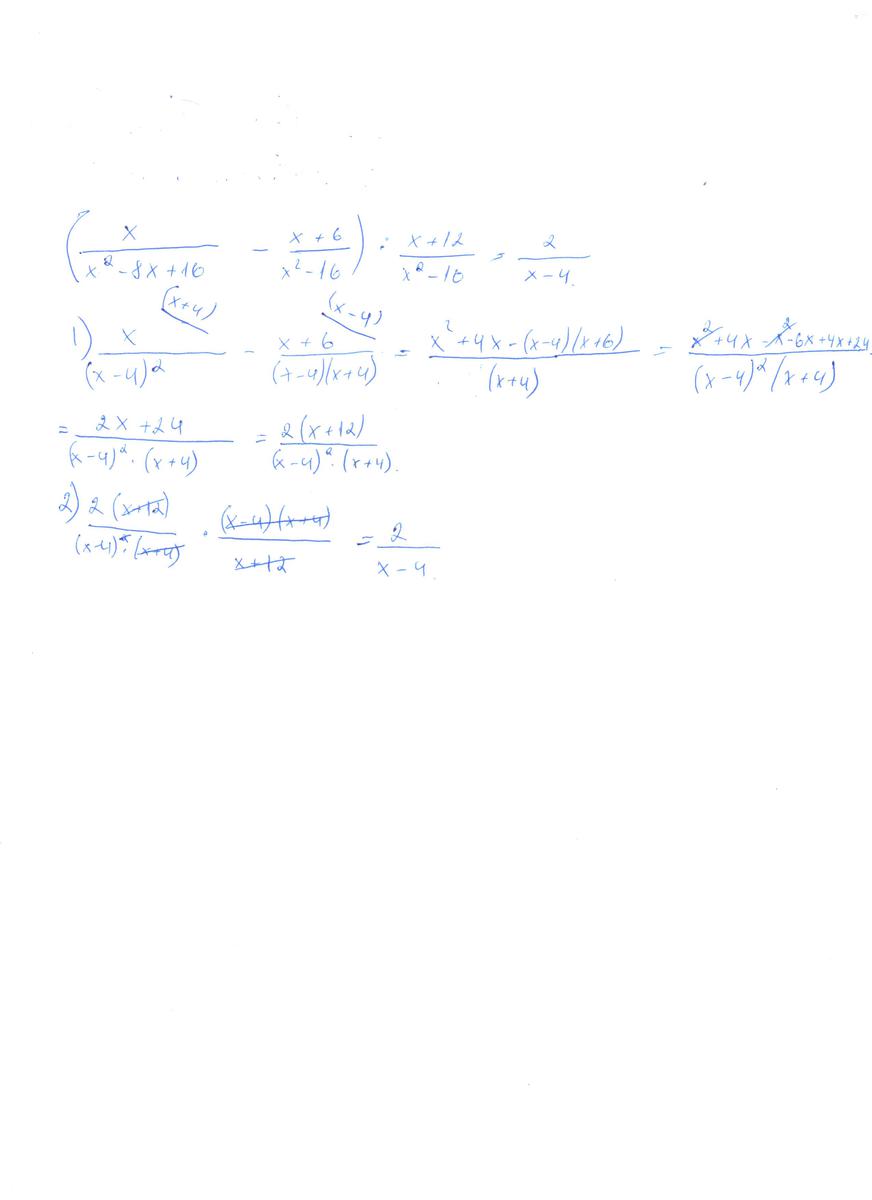 (x / (x² - 8x + 16) - (x + 6) / (x² - 16)) : (x + 12) / (x² - 16) = 2 / (x - 4).
1) x (x+4) / (x - 4)² - (x + 6) (x-4) / ((x-4)(x+4)) = (x² + 4x - (x-4)(x+6)) / (x+4) = (x² + 4x - x² - 6x + 4x + 24) / ((x-4)²(x+4))
= (2x + 24) / ((x-4)² · (x+4)) = 2(x+12) / ((x-4)² · (x+4)).
2) 2(x+12) / ((x-4)² · (x+4)) · (x-4)(x+4) / (x+12) = 2 / (x - 4).